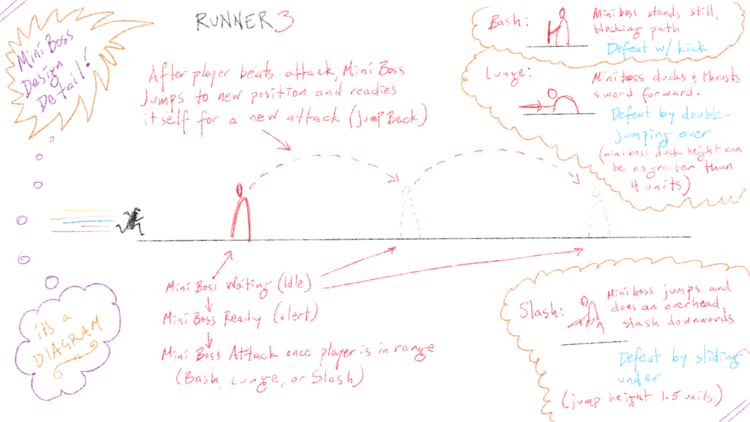 RUNNER 3
Mini Boss
Design
Detail!
After player beats attack, Mini Boss
jumps to new position and readies
itself for a new attack (jumpBack)
Bash:
Mini boss stands still,
blocking path
Defeat w/ kick
Lunge:
Mini boss ducks & thrusts
sword forward.
Defeat by double-
jumping over
(mini boss duck height can
be no greater than
4 units)
Mini Boss Waiting (Idle)
Mini Boss Ready (alert)
Mini Boss Attack once player is in range
(Bash, Lunge, or Slash)
it's a
DIAGRAM
Slash:
Mini boss jumps and
does an overhead
slash downwards
Defeat by sliding
under
(jump height 1.5 units)